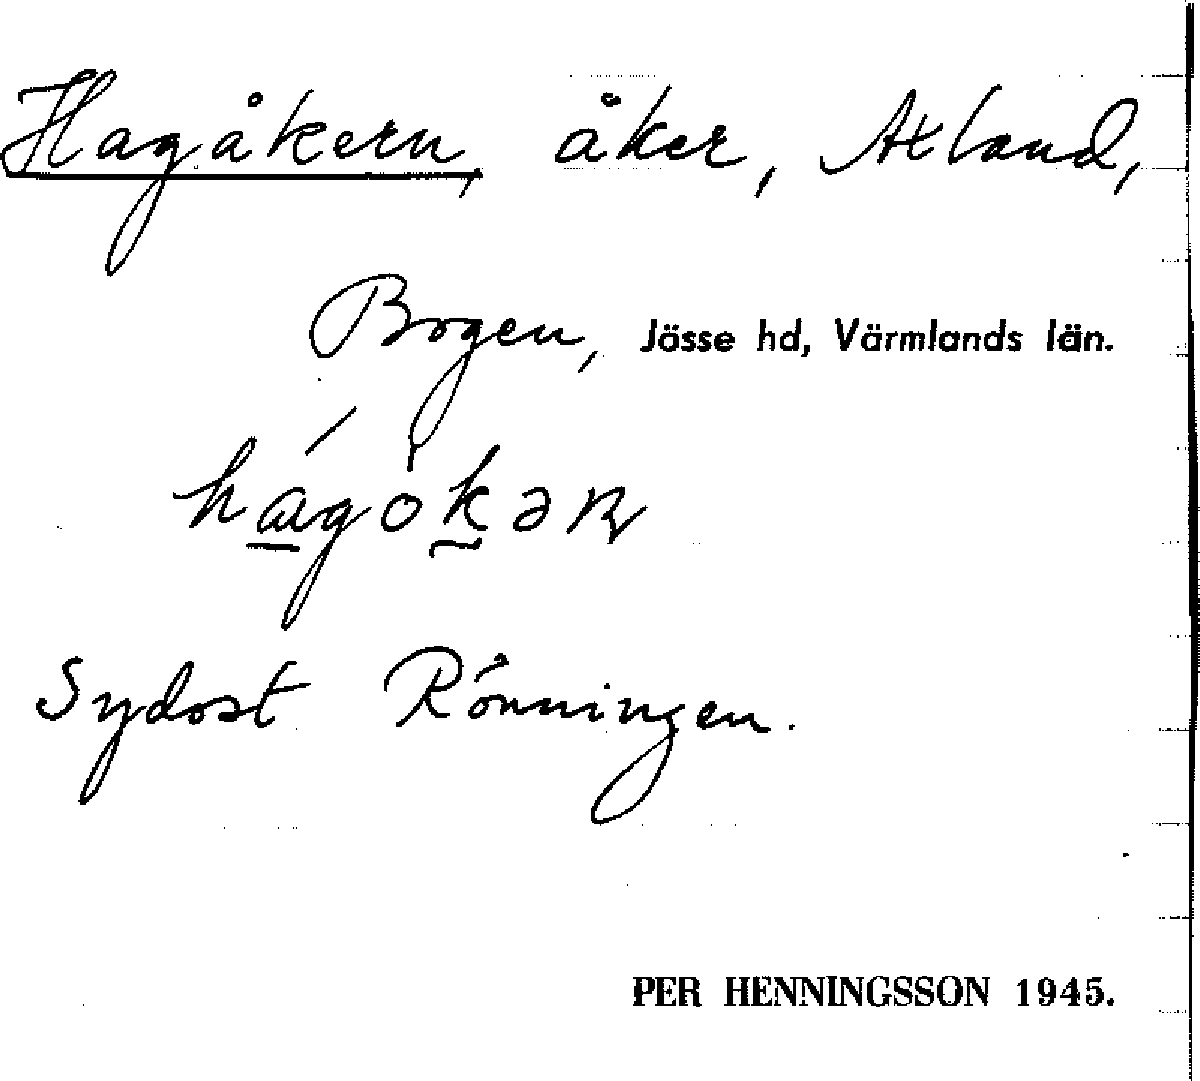 Hagåkern, åker, Atland,
Bogen, Jösse hd, Värmlands län.
Sydost Rönningen.
PER HENNINGSSON 1945.